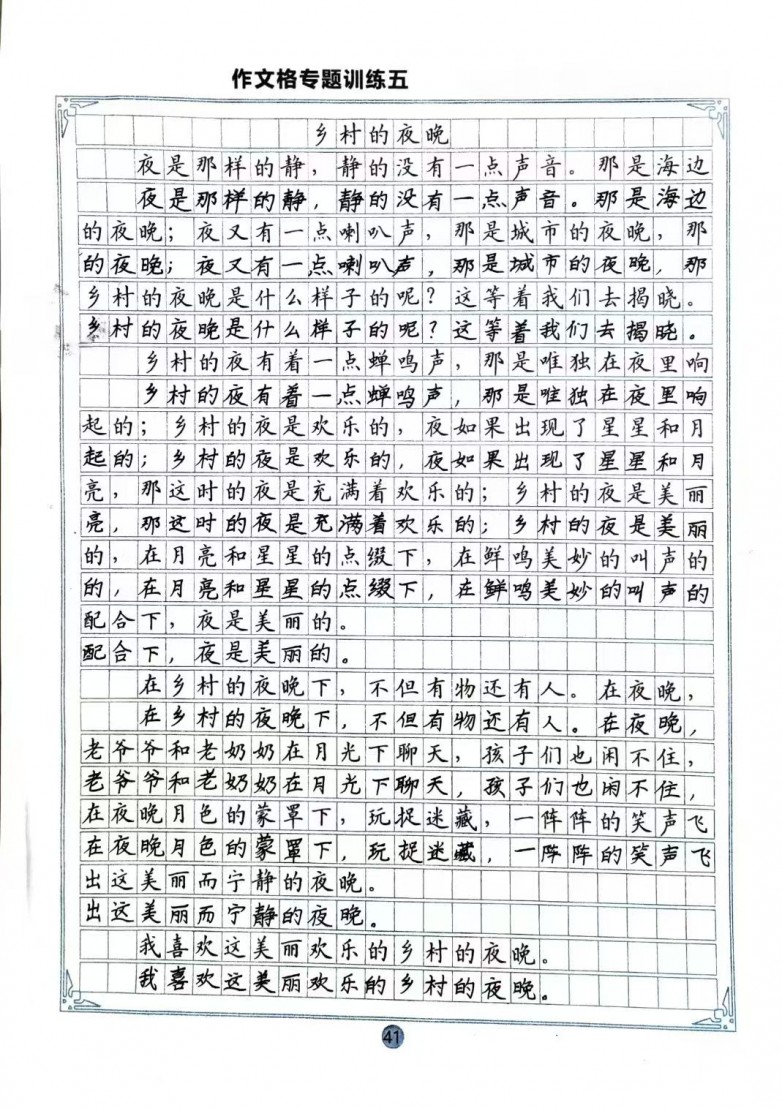 作文格专题训练五
乡村的夜晚
夜是那样的静，静的没有一点声音。那是海边
夜是那样的静，静的没有一点声音。那是海边
的夜晚；夜又有一点喇叭声，那是城市的夜晚，那
的夜晚；夜又有一点喇叭声，那是城市的夜晚，那
乡村的夜晚是什么样子的呢？这等着我们去揭晓。
乡村的夜晚是什么样子的呢？这等着我们去揭晓。
乡村的夜有着一点蝉鸣声，那是唯独在夜里响
乡村的夜有着一点蝉鸣声，那是唯独在夜里响
起的；乡村的夜是欢乐的，夜如果出现了星星和月
起的；乡村的夜是欢乐的，夜如果出现了星星和月
亮，那这时的夜是充满着欢乐的；乡村的夜是美丽
亮，那这时的夜是充满着欢乐的；乡村的夜是美丽
的，在月亮和星星的点缀下，在鲜鸣美妙的叫声的
的，在月亮和星星的点缀下，在鲜鸣美妙的叫声的
配合下，夜是美丽的。
配合下，夜是美丽的。
在乡村的夜晚下，不但有物还有人。在夜晚，
在乡村的夜晚下，不但有物还有人。在夜晚，
老爷爷和老奶奶在月光下聊天，孩子们也闲不住，
老爷爷和老奶奶在月光下聊天，孩子们也闲不住，
在夜晚月色的蒙罩下，玩捉迷藏，一阵阵的笑声飞
在夜晚月色的蒙罩下，玩捉迷藏，一阵阵的笑声飞
出这美丽而宁静的夜晚。
出这美丽而宁静的夜晚。
我喜欢这美丽欢乐的乡村的夜晚。
我喜欢这美丽欢乐的乡村的夜晚。
41